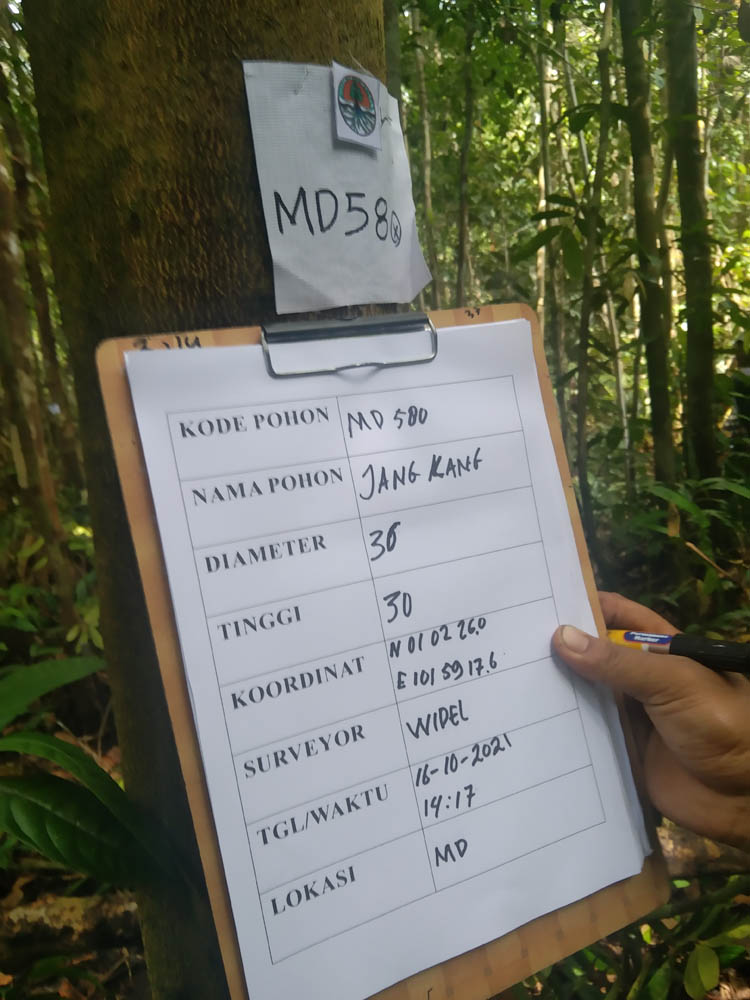 MD58
KODE POHON MD 580
NAMA POHON JANG KANG
DIAMETER 36
TINGGI 30
KOORDINAT N 01 02 26.0
E 101 59 17.6
SURVEYOR WIDEL
TGL/WAKTU 16-10-2021
14:17
LOKASI MD